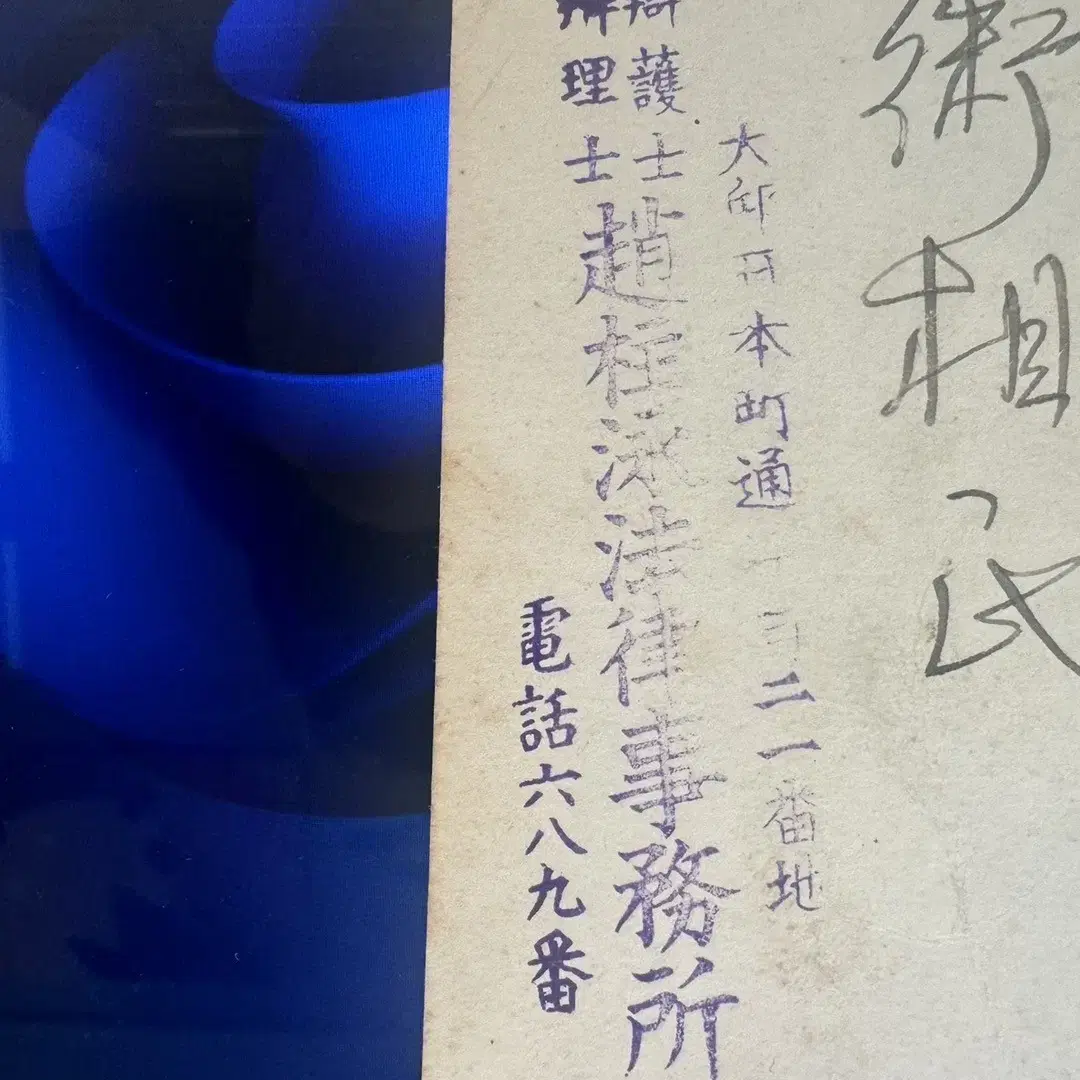 相氏
大邱府本町通二一番地
護士
理士
趙柱泳法律事務所
電話六八九番